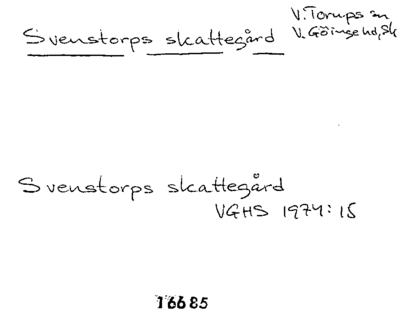 V. Torups sn
Svenstorps skattegård V. Göinge hd, Sk
Svenstorps skattegård
VGHS 1974:15
16685